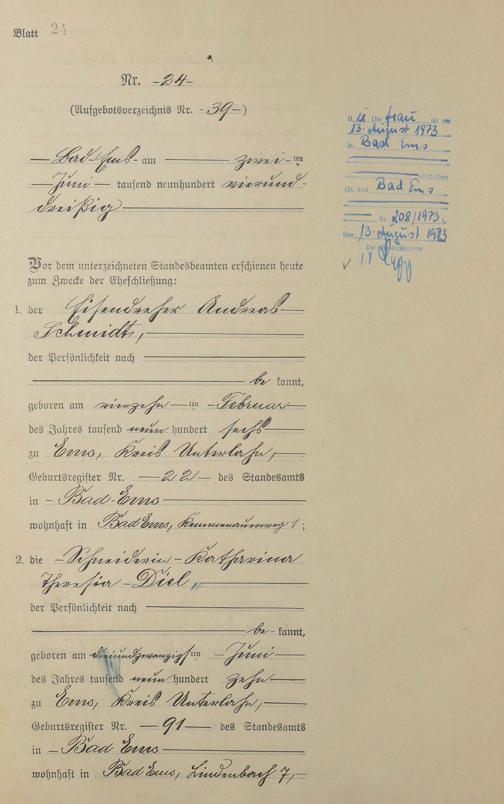 Blatt 24
Nr. -24-
(Aufgebotsverzeichnis Nr. -39-)
Bad-Ems- am zwei-ten
Juni tausend neunhundert vierund-
dreißig
Vor dem unterzeichneten Standesbeamten erschienen heute
zum Zwecke der Eheschließung:
1. der Eisendreher Andreas
Schmidt,
der Persönlichkeit nach
be kannt,
geboren am vierzehn ten Februar
des Jahres tausend neun hundert sechs
zu Ems, Kreis Unterlahn,
Geburtsregister Nr. -22- des Standesamts
in - Bad-Ems
wohnhaft in Bad Ems, Kemmenauerweg 1;
2. die - Schneiderin - Katharina
Theresia - Diel,
der Persönlichkeit nach
be- kannt,
geboren am dreiundzwanzigsten Juni
des Jahres tausend neun hundert zehn
zu Ems, Kreis Unterlahn,
Geburtsregister Nr. -91- des Standesamts
in - Bad Ems
wohnhaft in Bad Ems, Lindenbach 7,
Ehefrau ist am
13. August 1973
in Bad Ems
verstorben
(St. Amt Bad Ems
Nr. 208/1973).
Den 13. August 1973
Der Standesbeamte
I.V.